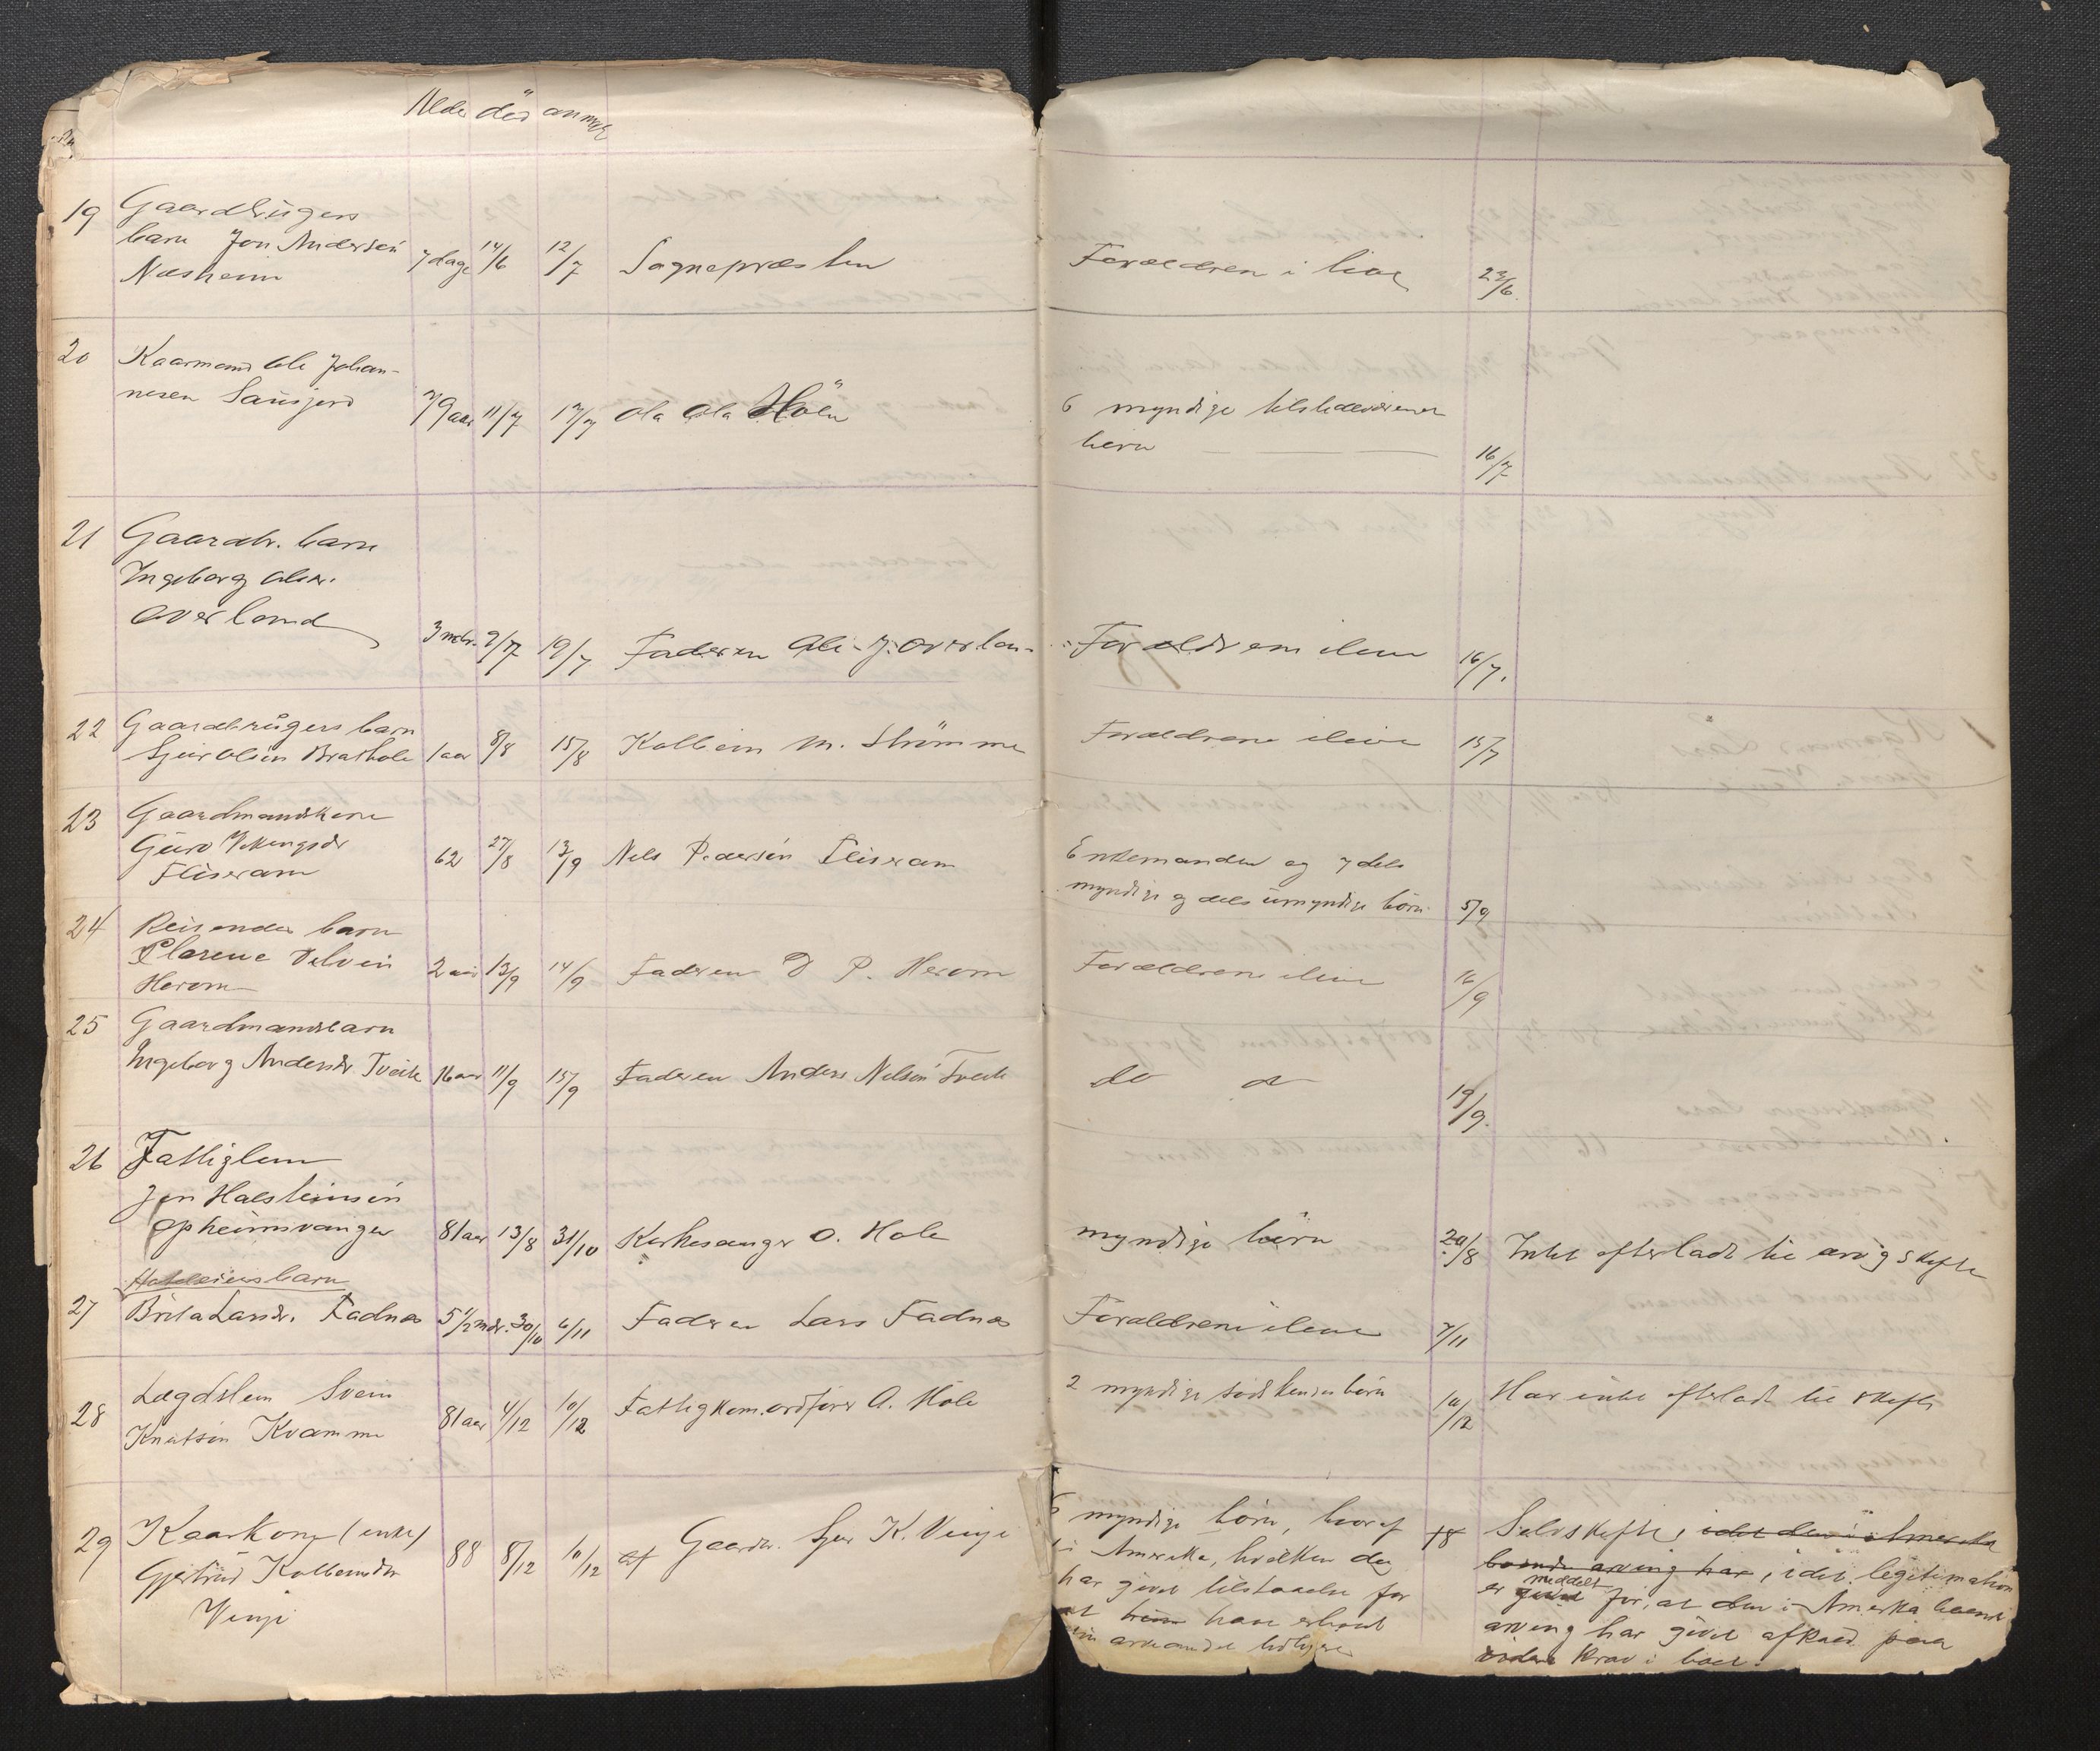 Alder död anm
19 Gaardbrugers
barn Jon Andersen
Næsheim 7 dage 14/6 12/7 Sognepræsten Forældren i live 23/6.
20 Kaarmand Ole Johan-
nesen Saüsjord 79 aar 11/7 17/7 Ola Ola Höln 6 myndige tilstedeværener
børn 16/7
21 Gaardbr. barn
Ingeborg Olsdr.
Øverland 3 mdr. 9/7 19/7 Faderen Ole J. Øverlan- Forældrene ilive 16/7.
22 Gaardbrügers barn
Sjur Olsen Brathole 1 aar 8/8 15/8 Kolbein M. Strömme Forældrene ilive 15/7
23 Gaardmandskone
Guro Vikingsdr
Fliseram 62 27/8 13/9 Nels Pedersen Fliseram Enkemanden og 7 dels
myndige og dels umyndige börn 5/9
24 Reisendes barn
Clarence Delvin
Herom 2 aar 13/9 14/9 Faderen D P. Herom Forældrene ilive 16/9
25 Gaardmandsbarn
Ingeborg Andersdr. Tveite 16 aar 11/9 15/9 Faderen Anders Nelsen Tveite do do 19/9.
26 Fattiglem
Jon Halsteinsen
Opheimsvangen 81 aar 13/8 31/10 Kirkesanger O. Hole myndige börn 20/8 Intet efterladt til arv og skifte
Hoteleiersbarn
27 Brita Larsdr. Fadnes 5 1/2 mdr. 30/10 6/11 Faderen Lars Fadnes Forældrene ilive 7/11
28 Lægdslem Svein
Knutsen Kvamme 81 aar 4/12 10/12 Fattigkom.ordförer O. Hole 2 myndige sødskendebörn 10/12 Har intet efterladt til skifte
29 Kaarkone (enke)
Gjertrud Kolbeinsdr
Vinje 88 8/12 10/12 af Gaardbr. Sjur K. Vinje 6 myndige börn, hvoraf 18 Selvskifte, idet den i Amerika
i Amerika, hvilken dog boende arving har, idet legitimation
har givet tilstaaelse for er givet meddelt for, at den i Amerika boende
at have erholdt arving har givet afkald paa
sin arveandel tidligere videre krav i boet.